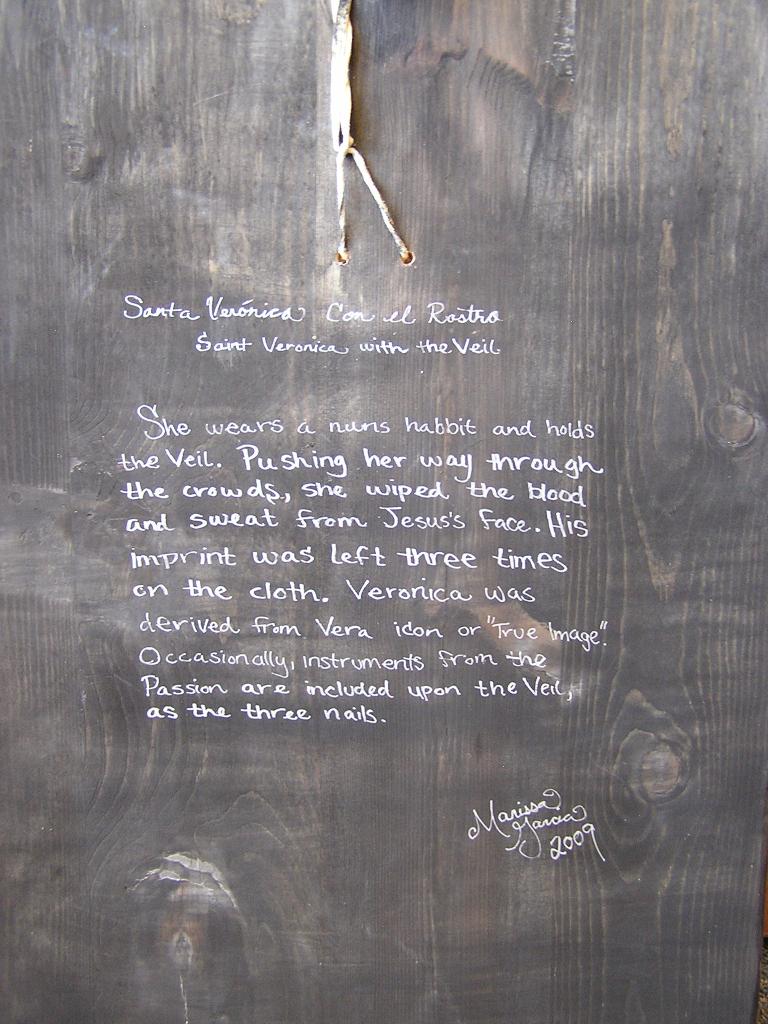 Santa Verónica Con el Rostro
Saint Veronica with the Veil
She wears a nuns habbit and holds
the Veil. Pushing her way through
the crowds, she wiped the blood
and sweat from Jesus's face. His
imprint was left three times
on the cloth. Veronica was
derived from Vera icon or "True Image".
Occasionally, instruments from the
Passion are included upon the Veil,
as the three nails.
Marissa
Garcia
2009